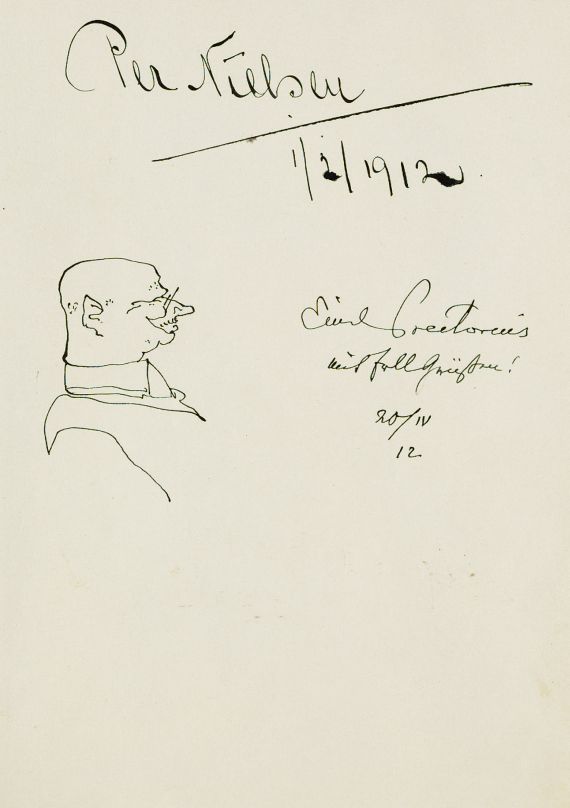 Per Nielsen
1/2/1912.
Emil Preetorius
mit foll Grüßen!
20/IV
12